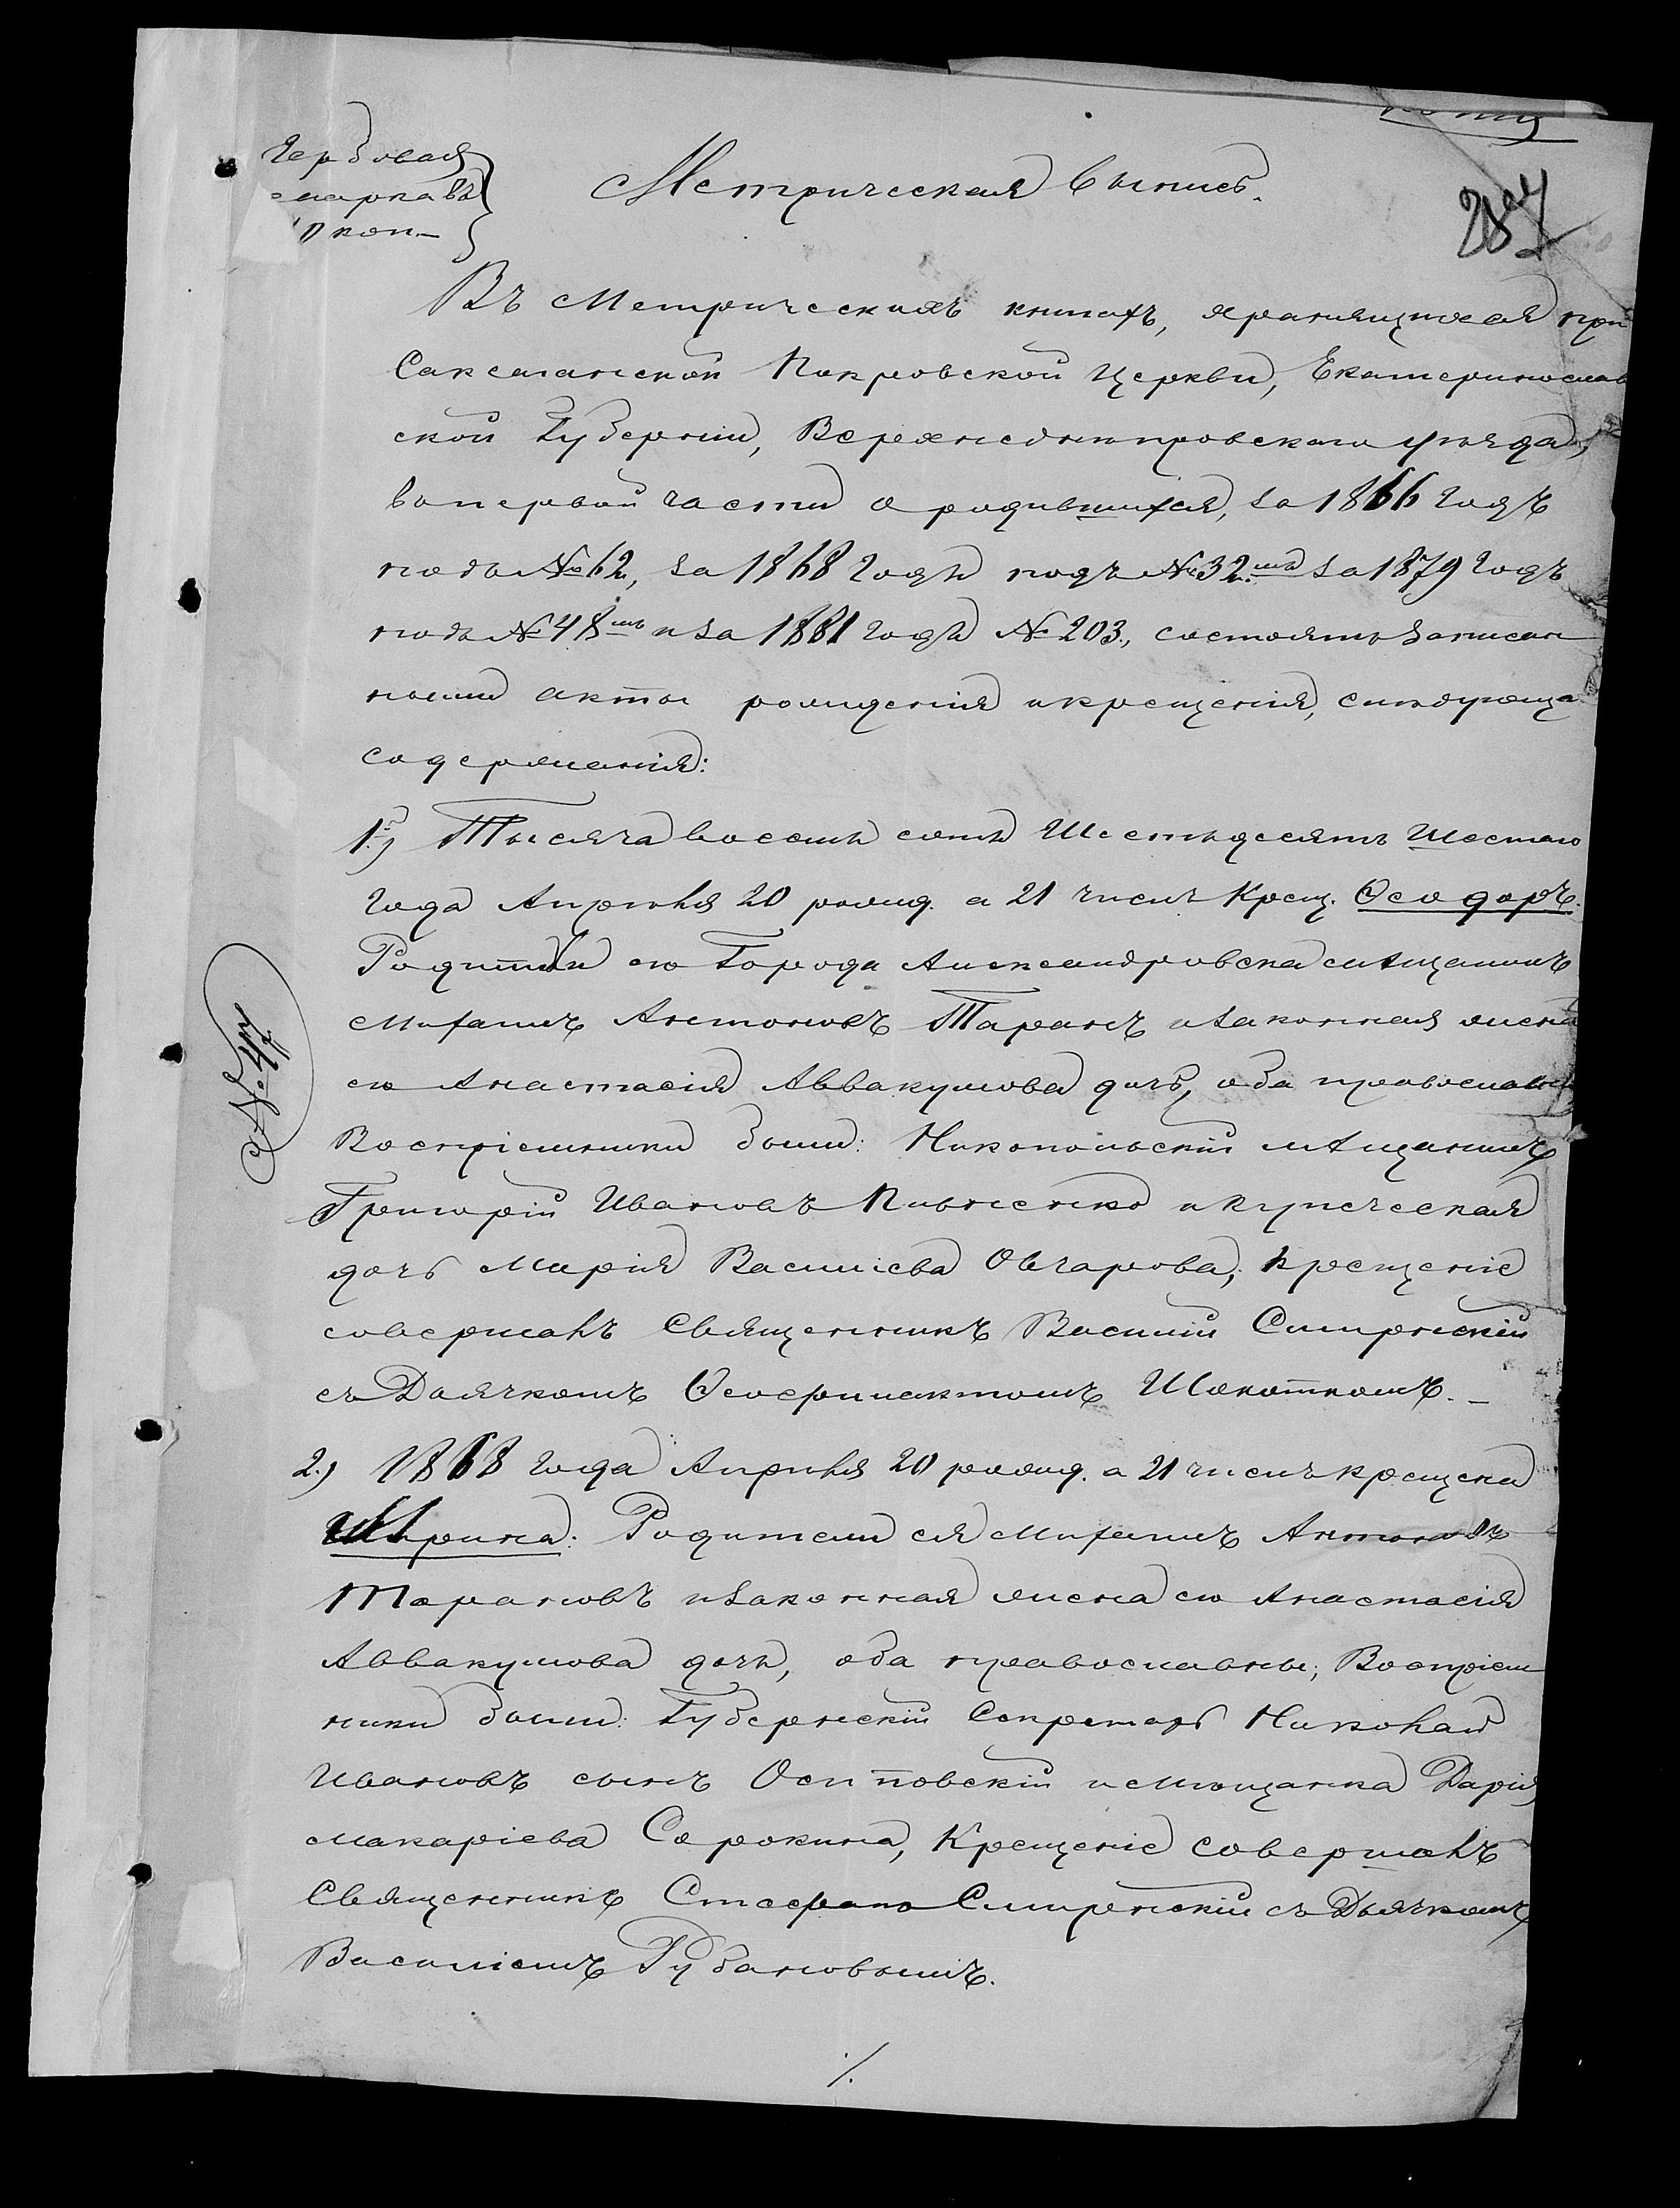 Гербовая
марка въ
10 коп.
Метрическая выпись.
Въ Метрическихъ книгахъ, хранящихся при
Саксаганской Покровской Церкви, Екатеринослав
ской Губерніи, Верхнеднѣпровскаго уѣзда,
въ первой части о родившихся, за 1866 годъ
подъ № 62, за 1868 годъ подъ № 32.мъ за 1879 годъ
подъ № 48мъ и за 1881 годъ № 203., состоятъ записан
ными акты рожденія и крещенія, слѣдующа
содержанія:
1.) Тысяча восемь сотъ Шестьдесятъ Шестого
Года Апрѣля 20 рожд. а 21 числ. Крещ. Ѳеодоръ.
Родители его Города Александровска мѣщанинъ
Михаилъ Антоновъ Таранъ и законная жена
его Анастасія Аввакумова дочь, оба православн
Воспріемники были: Никопольскій мѣщанинъ
Григорій Ивановъ Пивненко и купеческая
дочь Марія Василіева Овчарова; крещеніе
совершалъ Священникъ Василій Смиренскій
съ Дьячкомъ Ѳеоф
2.) 1868 года Апрѣля 20 рожд. а 21 числ. крещена
Ирина: Родители ея Михаилъ Антоновъ
Тарановъ и законная жена его Анастасія
Аввакумова дочь, оба православны; Воспріем
ники были: Губернскій Секретарь Николай
Ивановъ сынъ Осиповскій и мѣщанка Дарія
Макаріева Сорокина, Крещеніе совершалъ
Священникъ Стефанъ Смиренскій съ Дьячкомъ
Василіемъ Рубановымъ.
№ 47